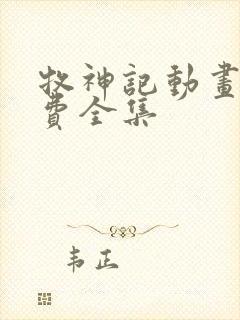 牧神記動畫
費全集
韦正